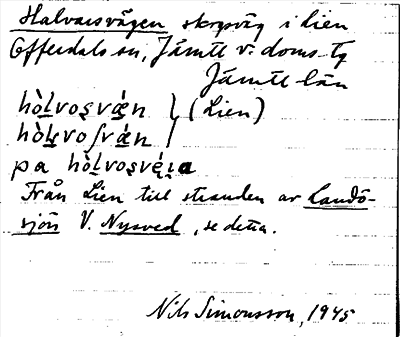 Halvarsvägen skogsväg i Lien
Offerdals sn, Jämtl. v. doms.
Jämtl. län
hò̀lvosvæ̀n } (Lien)
pa
Från Lien till stranden av Landö-
sjön V. Nysved, se detta.
Nils Simonsson, 1945